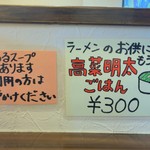 るスープ
あります
用の方は
かけください
ラーメンのお供に
高菜明太
ごはん
¥300